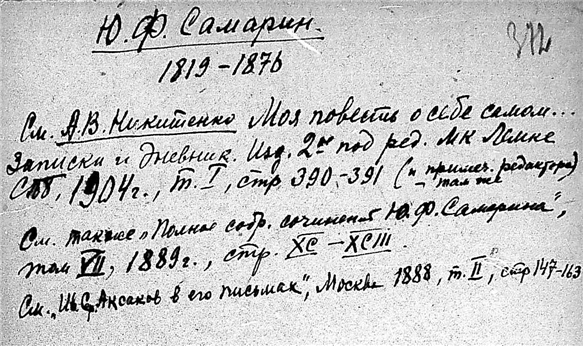 Ю. Ф. Самарин.
312
1819 – 1876
См. А. В. Никитенко Моя повесть о себе самом...
Записки и дневник. Изд. 2ое под ред. МК Лемке
СПб, 1904 г., т. I, стр 390–391 (и примеч. редактора)
там же
См. также „Полное собр. сочинений Ю. Ф. Самарина",
том VII, 1889 г., стр. XC – XCIII.
См. „Ив. С. Аксаков в его письмах", Москва 1888, т. II, стр 147–163